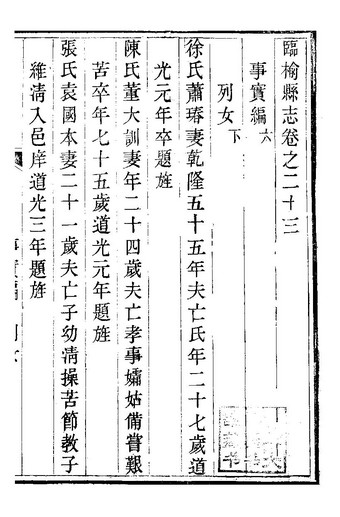 臨榆縣志卷之二十三
事實編六
列女下
徐氏蕭璿妻乾隆五十五年夫亡氏年二十七歲道
光元年卒題旌
陳氏董大訓妻年二十四歲夫亡孝事孀姑備嘗艱
苦卒年七十五歲道光元年題旌
張氏袁國本妻二十一歲夫亡子幼清操苦節教子
維清入邑庠道光三年題旌